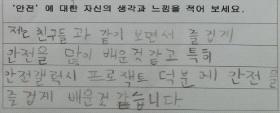 '안전'에 대한 자신의 생각과 느낌을 적어 보세요.
저는 친구들과 같이 보면서 즐겁게
안전을 많이 배운것 같고 특히
안전갤럭시 프로잭트 덕분에 안전을
즐겁게 배운것 같습니다